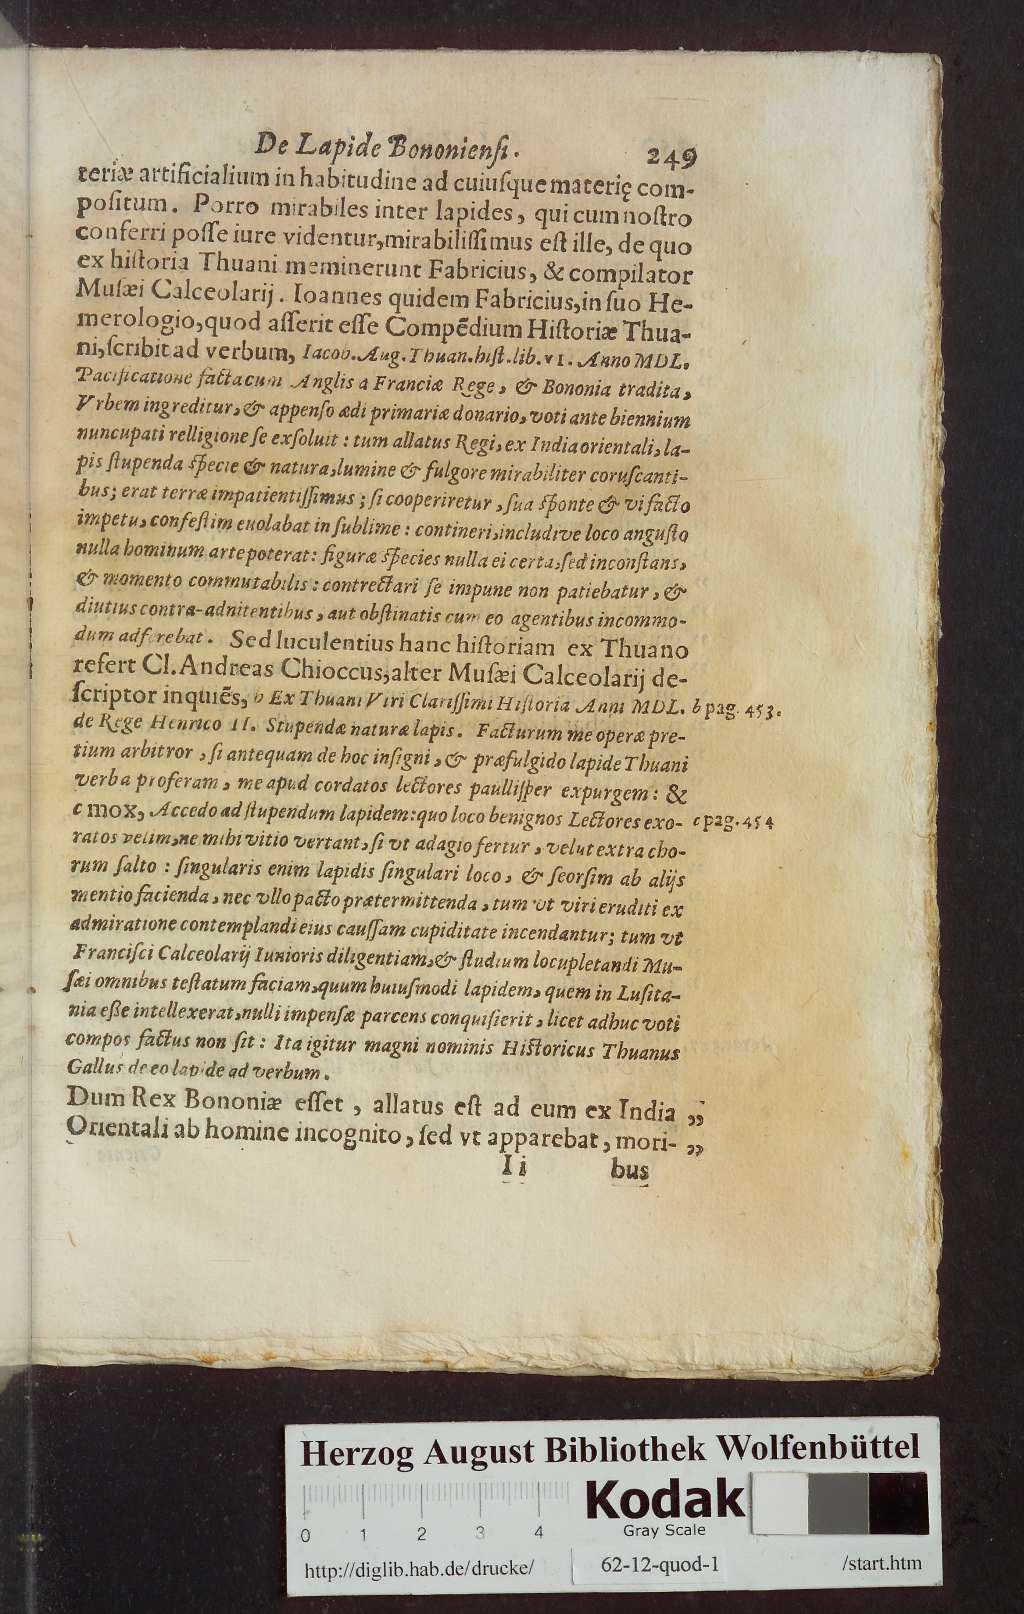 De Lapide Bononiensi. 249
teriæ artificialium in habitudine ad cuiuſque materię com-
poſitum. Porro mirabiles inter lapides, qui cum noſtro
conferri poſſe iure videntur, mirabiliſſimus eſt ille, de quo
ex hiſtoria Thuani meminerunt Fabricius, & compilator
Muſæi Calceolarij. Ioannes quidem Fabricius, in ſuo He-
merologio, quod aſſerit eſſe Compēdium Hiſtoriæ Thua-
ni, ſcribit ad verbum, Iacob. Aug. Thuan. hiſt. lib. VI. Anno MDL.
Pacificatione facta cum Anglis a Franciæ Rege, & Bononia tradita,
Vrbem ingreditur, & appenſo ædi primariæ donario, voti ante biennium
nuncupati relligione ſe exſoluit: tum allatus Regi, ex India orientali, la-
pis ſtupenda ſpecie & natura, lumine & fulgore mirabiliter coruſcanti-
bus; erat terræ impatientiſſimus; ſi cooperiretur, ſua ſponte & vi facto
impetu, confeſtim euolabat in ſublime: contineri, includive loco anguſto
nulla hominum arte poterat: figuræ ſpecies nulla ei certa, ſed inconſtans,
& momento commutabilis: contrectari ſe impune non patiebatur, &
diutius contra-adnitentibus, aut obſtinatis cum eo agentibus incommo-
dum adferebat. Sed luculentius hanc hiſtoriam ex Thuano
refert Cl. Andreas Chioccus, alter Muſæi Calceolarij de-
ſcriptor inquiẽs, b Ex Thuani Viri Clariſſimi Hiſtoria Anni MDL. b pag. 453.
de Rege Henrico II. Stupendæ naturæ lapis. Facturum me operæ pre-
tium arbitror, ſi antequam de hoc inſigni, & præfulgido lapide Thuani
verba proferam, me apud cordatos lectores paulliſper expurgem: &
c mox, Accedo ad ſtupendum lapidem: quo loco benignos Lectores exo- c pag. 454
ratos velim, ne mihi vitio vertant, ſi vt adagio fertur, velut extra cho-
rum ſalto: ſingularis enim lapidis ſingulari loco, & ſeorſim ab alijs
mentio facienda, nec vllo pacto prætermittenda, tum vt viri eruditi ex
admiratione contemplandi eius cauſſam cupiditate incendantur; tum vt
Franciſci Calceolarij Iunioris diligentiam, & ſtudium locupletandi Mu-
ſæi omnibus teſtatum faciam, quum huiuſmodi lapidem, quem in Luſita-
nia eſſe intellexerat, nulli impenſæ parcens conquiſierit, licet adhuc voti
compos factus non ſit: Ita igitur magni nominis Hiſtoricus Thuanus
Gallus de eo lapide ad verbum.
Dum Rex Bononiæ eſſet, allatus eſt ad eum ex India „
Orientali ab homine incognito, ſed vt apparebat, mori- „
I i bus
Herzog August Bibliothek Wolfenbüttel
0 1 2 3 4
Kodak
Gray Scale
http://diglib.hab.de/drucke/ 62-12-quod-1 /start.htm